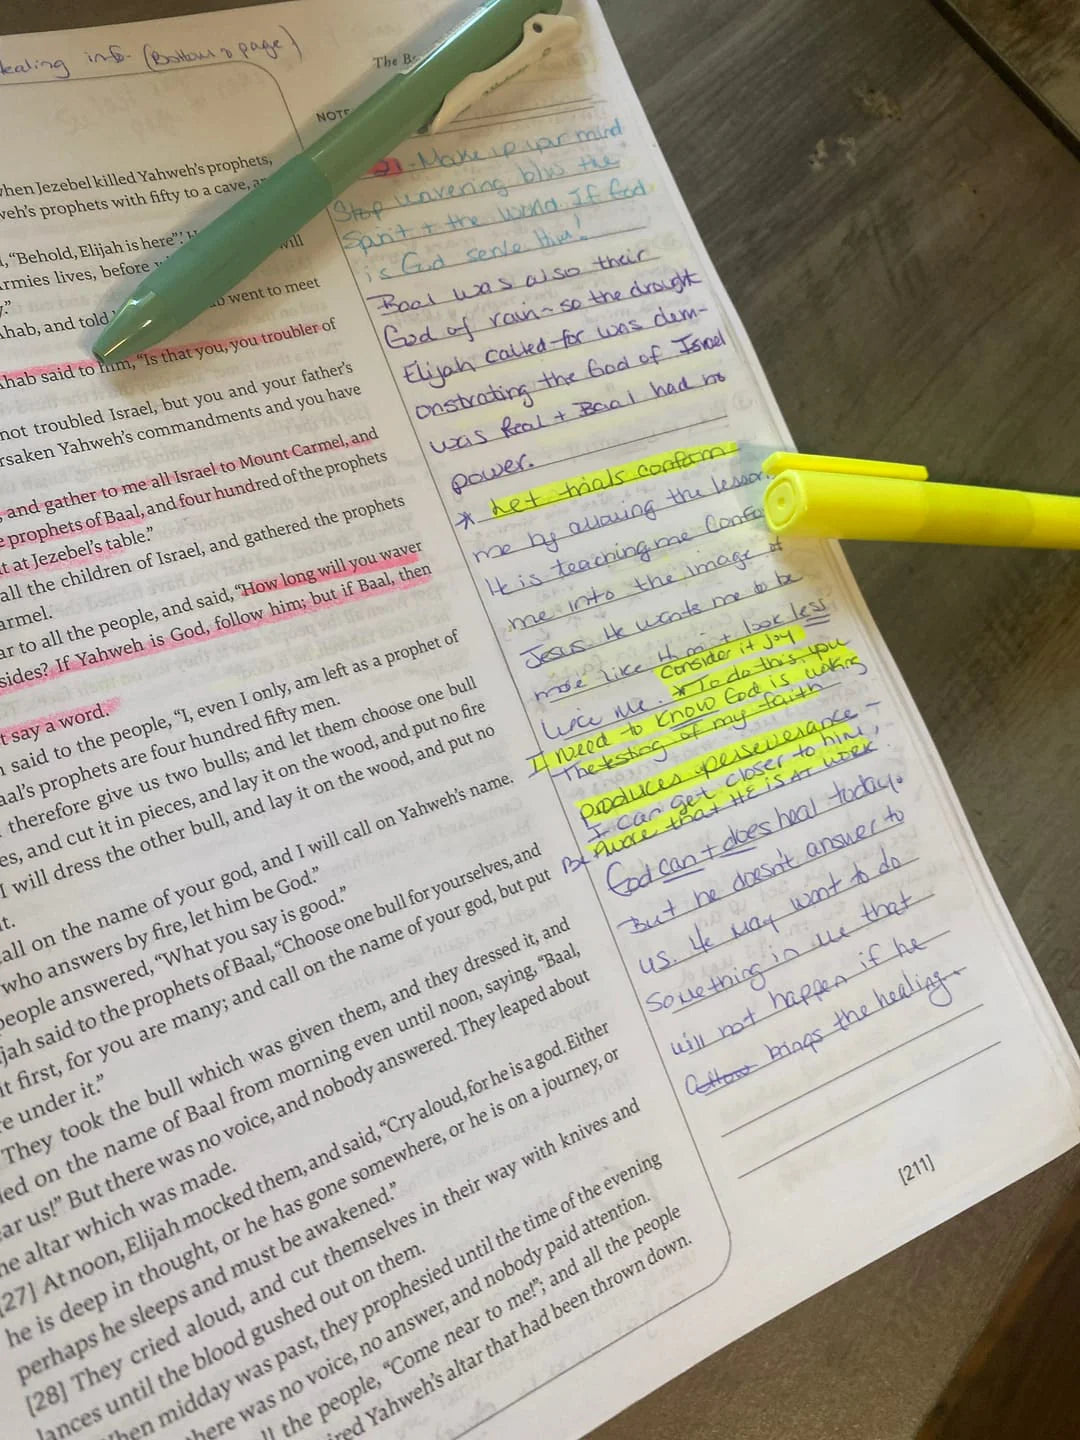 ealing info- (Bottom of page)
The B
NOTE
when Jezebel killed Yahweh's prophets,
weh's prophets with fifty to a cave, a
, "Behold, Elijah is here"'.
will
rmies lives, before
y."
hab, and told
went to meet
hab said to him, "Is that you, you troubler of
not troubled Israel, but you and your father's
rsaken Yahweh's commandments and you have
, and gather to me all Israel to Mount Carmel, and
e prophets of Baal, and four hundred of the prophets
t at Jezebel's table."
all the children of Israel, and gathered the prophets
armel.
ar to all the people, and said, "How long will you waver
sides? If Yahweh is God, follow him; but if Baal, then
t say a word.
said to the people, "I, even I only, am left as a prophet of
aal's prophets are four hundred fifty men.
therefore give us two bulls; and let them choose one bull
es, and cut it in pieces, and lay it on the wood, and put no fire
I will dress the other bull, and lay it on the wood, and put no
it.
call on the name of your god, and I will call on Yahweh's name.
who answers by fire, let him be God."
people answered, "What you say is good."
jah said to the prophets of Baal, "Choose one bull for yourselves, and
it first, for you are many; and call on the name of your god, but put
re under it."
They took the bull which was given them, and they dressed it, and
led on the name of Baal from morning even until noon, saying, "Baal,
ear us!" But there was no voice, and nobody answered. They leaped about
he altar which was made.
[27] At noon, Elijah mocked them, and said, "Cry aloud, for he is a god. Either
he is deep in thought, or he has gone somewhere, or he is on a journey, or
perhaps he sleeps and must be awakened."
[28] They cried aloud, and cut themselves in their way with knives and
lances until the blood gushed out on them.
hen midday was past, they prophesied until the time of the evening
here was no voice, no answer, and nobody paid attention.
ll the people, "Come near to me!"; and all the people
ired Yahweh's altar that had been thrown down.
21 - Make up your mind
Stop wavering b/w the
Spirit + the world. If God
is God serve Him!
Baal was also their
God of rain - so the drought
Elijah called for was dem-
onstrating the God of Israel
was Real + Baal had no
power.
* Let trials conform
me by allowing the lesson
He is teaching me Confo
me into the image of
Jesus. He wants me to be
more like Him + look less
like me.
Consider it Joy
* To do this, you
I need to know God is working
The testing of my faith
produces perseverance -
I can get closer to him,
Be Aware that HE is AT WORK
God can + does heal today.
But he doesn't answer to
us. He may want to do
something in me that
will not happen if he
allow brings the healing
[211]